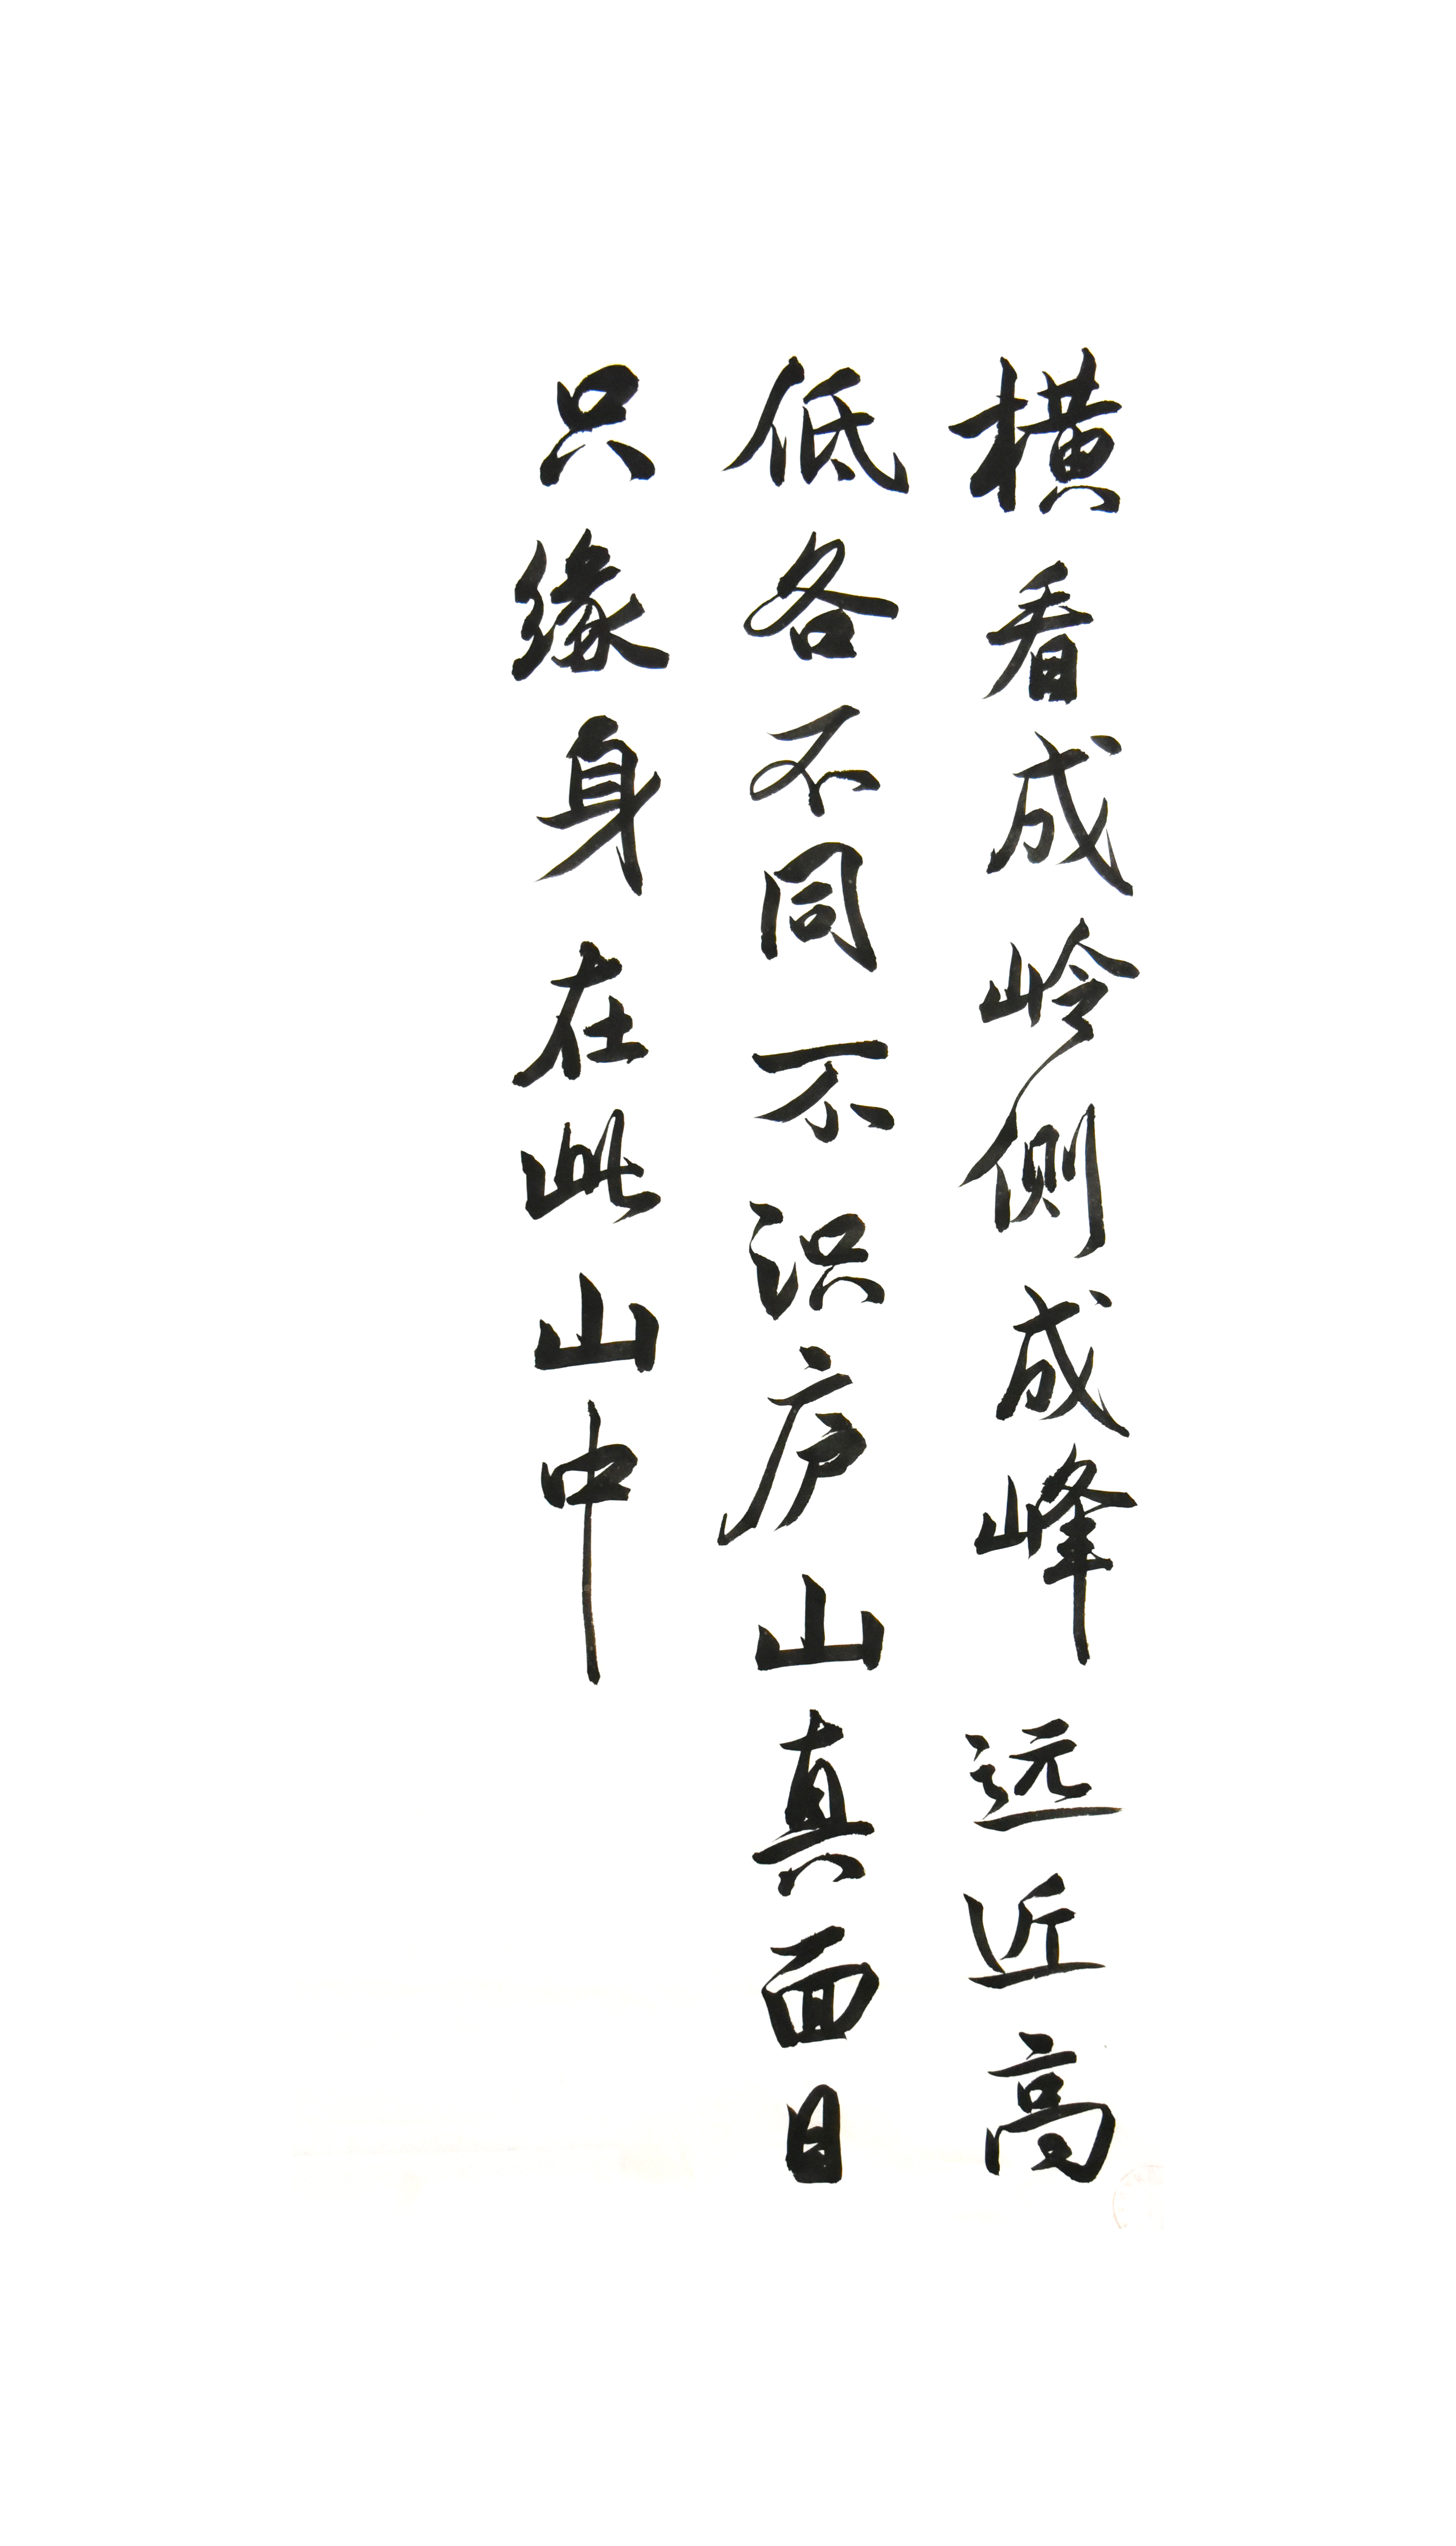 横看成岭侧成峰远近高
低各不同不识庐山真面目
只缘身在此山中